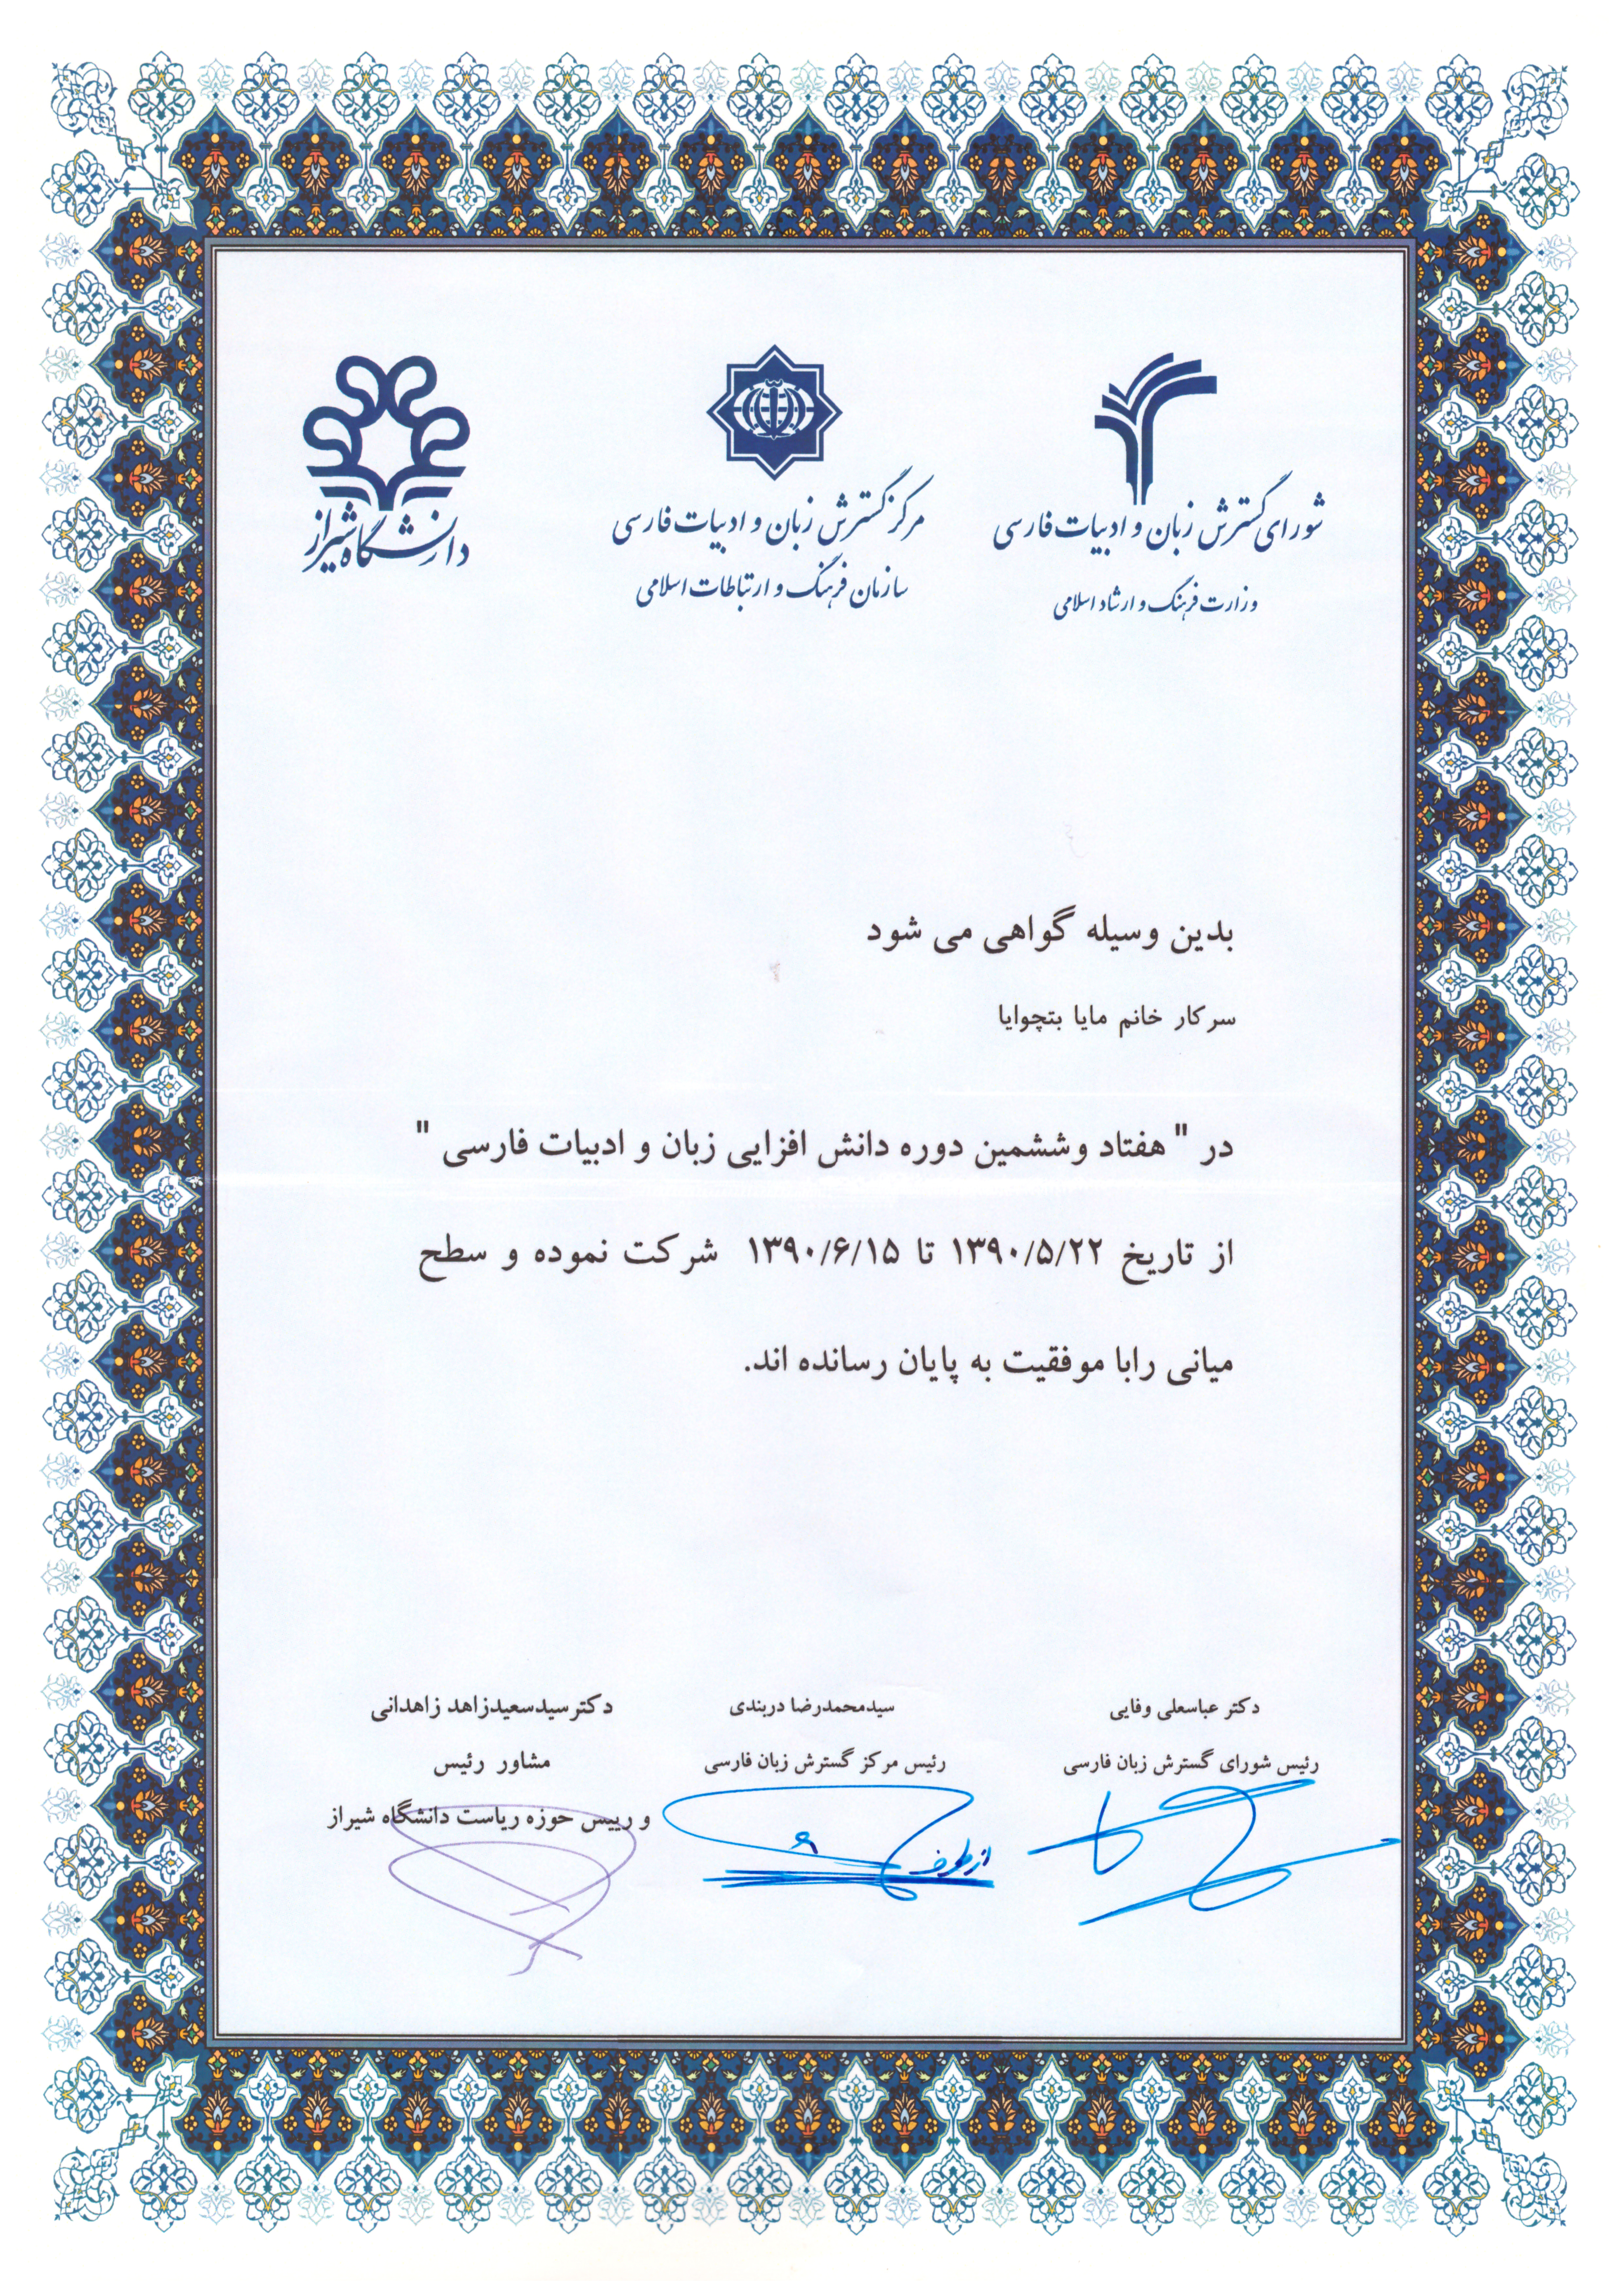 شورای گسترش زبان و ادبیات فارسی
وزارت فرهنگ و ارشاد اسلامی
مرکز گسترش زبان و ادبیات فارسی
سازمان فرهنگ و ارتباطات اسلامی
دانشگاه شیراز
بدین وسیله گواهی می شود
سرکار خانم مایا بتچوایا
در " هفتاد وششمین دوره دانش افزایی زبان و ادبیات فارسی "
از تاریخ ۱۳۹۰/۵/۲۲ تا ۱۳۹۰/۶/۱۵ شرکت نموده و سطح
میانی رابا موفقیت به پایان رسانده اند.
دکتر عباسعلی وفایی
رئیس شورای گسترش زبان فارسی
سیدمحمدرضا دربندی
رئیس مرکز گسترش زبان فارسی
از طرف
دکترسیدسعیدزاهد زاهدانی
مشاور رئیس
و رییس حوزه ریاست دانشگاه شیراز